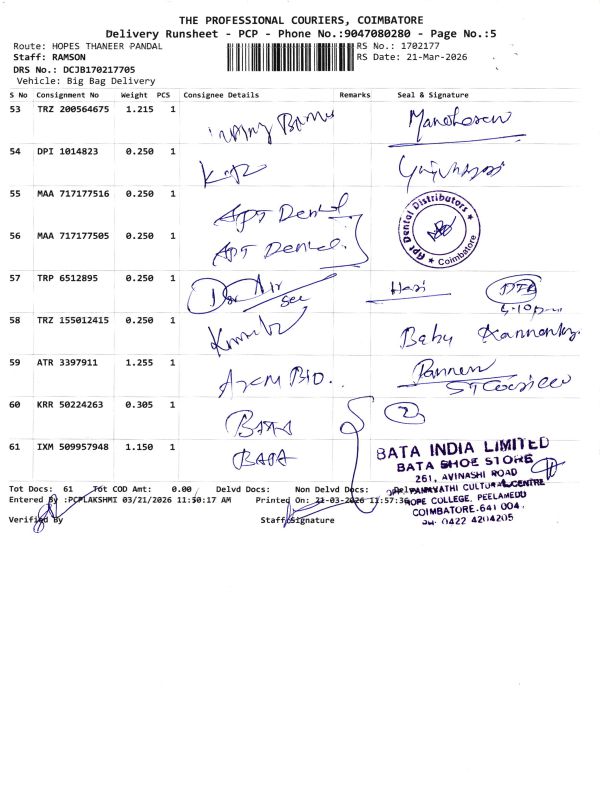 THE PROFESSIONAL COURIERS, COIMBATORE
Delivery Runsheet - PCP - Phone No.:9047080280 - Page No.:5
Route: HOPES THANEER PANDAL
RS No.: 1702177
Staff: RAMSON
RS Date: 21-Mar-2026
DRS No.: DCJB170217705
Vehicle: Big Bag Delivery
S No Consignment No Weight PCS Consignee Details Remarks Seal & Signature
53 TRZ 200564675 1.215 1
54 DPI 1014823 0.250 1
55 MAA 717177516 0.250 1 APT Dental
56 MAA 717177505 0.250 1 APT Dental
Apt Dental Distributors ★ Coimbatore ★
57 TRP 6512895 0.250 1 Hari
58 TRZ 155012415 0.250 1 Baby
59 ATR 3397911 1.255 1
60 KRR 50224263 0.305 1 BATA 2
61 IXM 509957948 1.150 1 BATA
BATA INDIA LIMITED
BATA SHOE STORE
261, AVINASHI ROAD
CULTURAL CENTRE
HOPE COLLEGE, PEELAMEDU
COIMBATORE-641 004.
0422 4204205
Tot Docs: 61 Tot COD Amt: 0.00 Delvd Docs: Non Delvd Docs:
Entered By :PCPLAKSHMI 03/21/2026 11:50:17 AM Printed On: 21-03-2026 11:57:36
Verified By Staff Signature